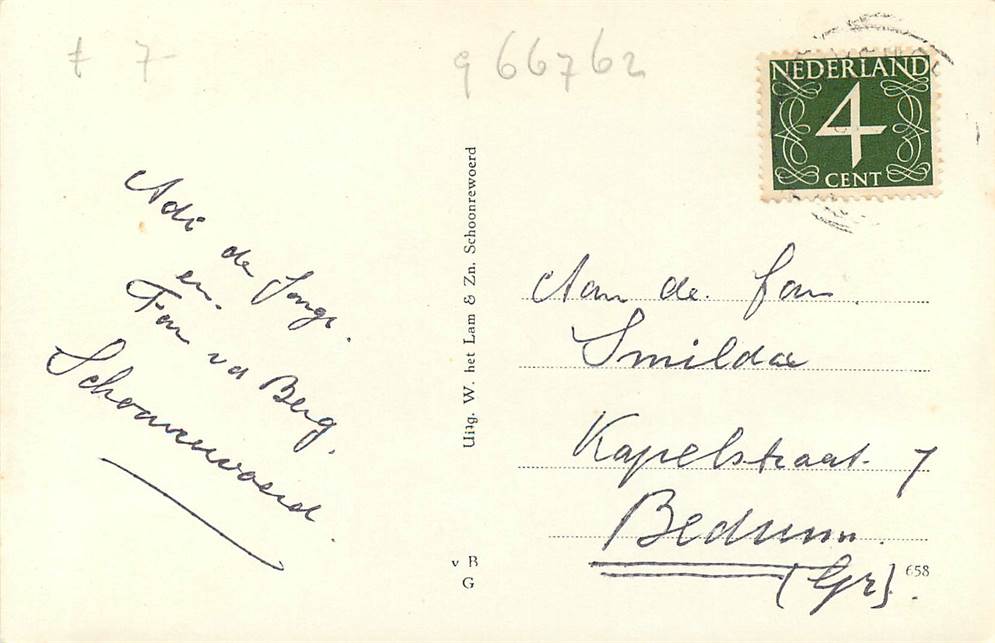 t 7-
9 66762
NEDERLAND
4
CENT
Adi de Jonge.
en.
Fam vd Berg.
Schoonrewoerd.
Uitg. W. het Lam & Zn. Schoonrewoerd
Aan de. fam.
Smildae
Kapelstraat 7
Bedum.
(Gr).
v B
G
658